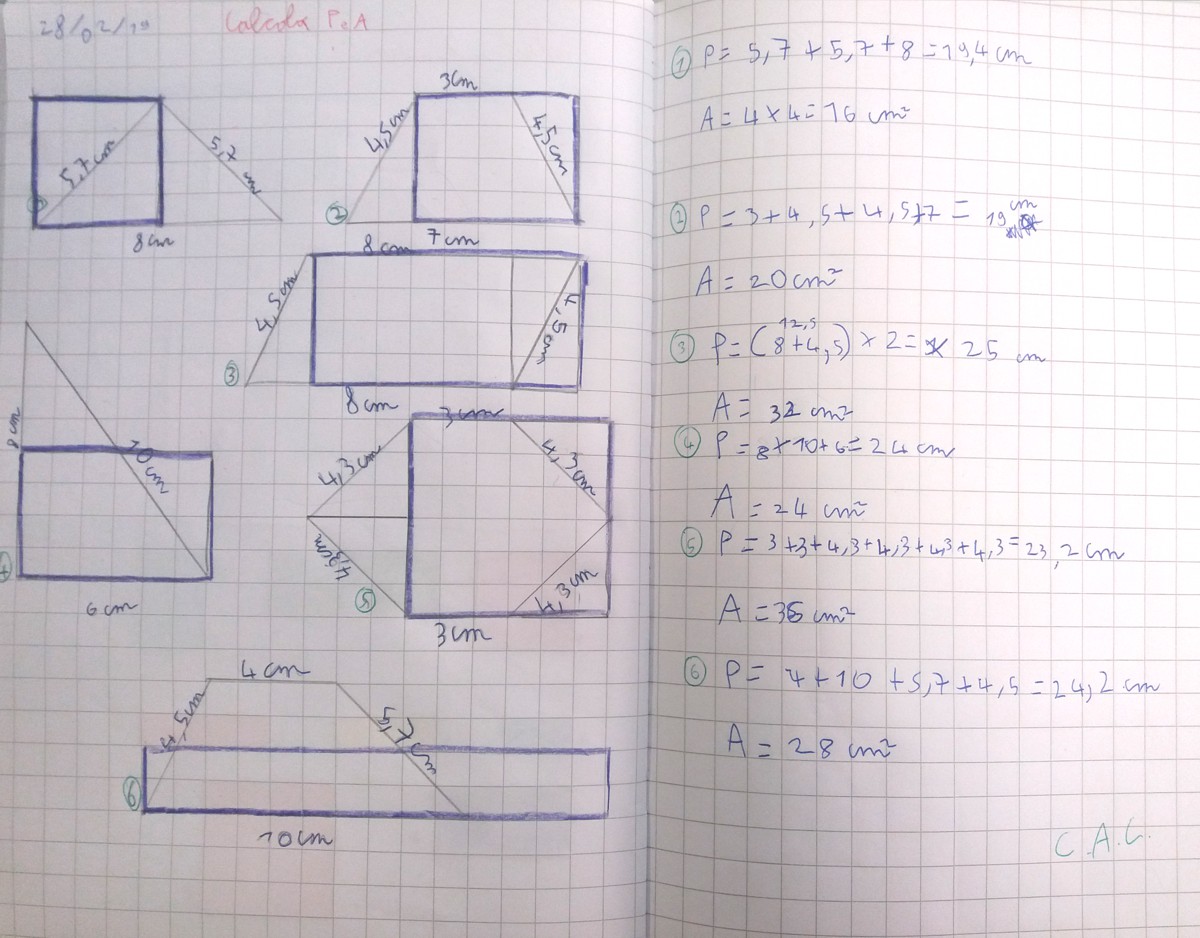 28/02/19
Calcola P e A
5,7 cm
5,7 cm
8cm
3cm
4,5cm
4,5cm
②
7 cm
8 cm
4,5cm
4,5cm
③
8cm
8cm
10cm
6cm
3cm
4,3cm
4,3cm
4,3cm
4,3cm
⑤
3cm
4cm
4,5cm
5,7cm
⑥
10cm
① P= 5,7+5,7+8=19,4cm
A=4×4=16 cm²
② P=3+4,5+4,5+7= 19 cm
A=20cm²
12,5
③ P=(8+4,5)×2= 25 cm
A= 32 cm²
④ P=8+10+6=24cm
A=24 cm²
⑤ P=3+3+4,3+4,3+4,3+4,3=23,2cm
A=36 cm²
⑥ P= 4+10+5,7+4,5=24,2 cm
A=28 cm²
C.A.C.